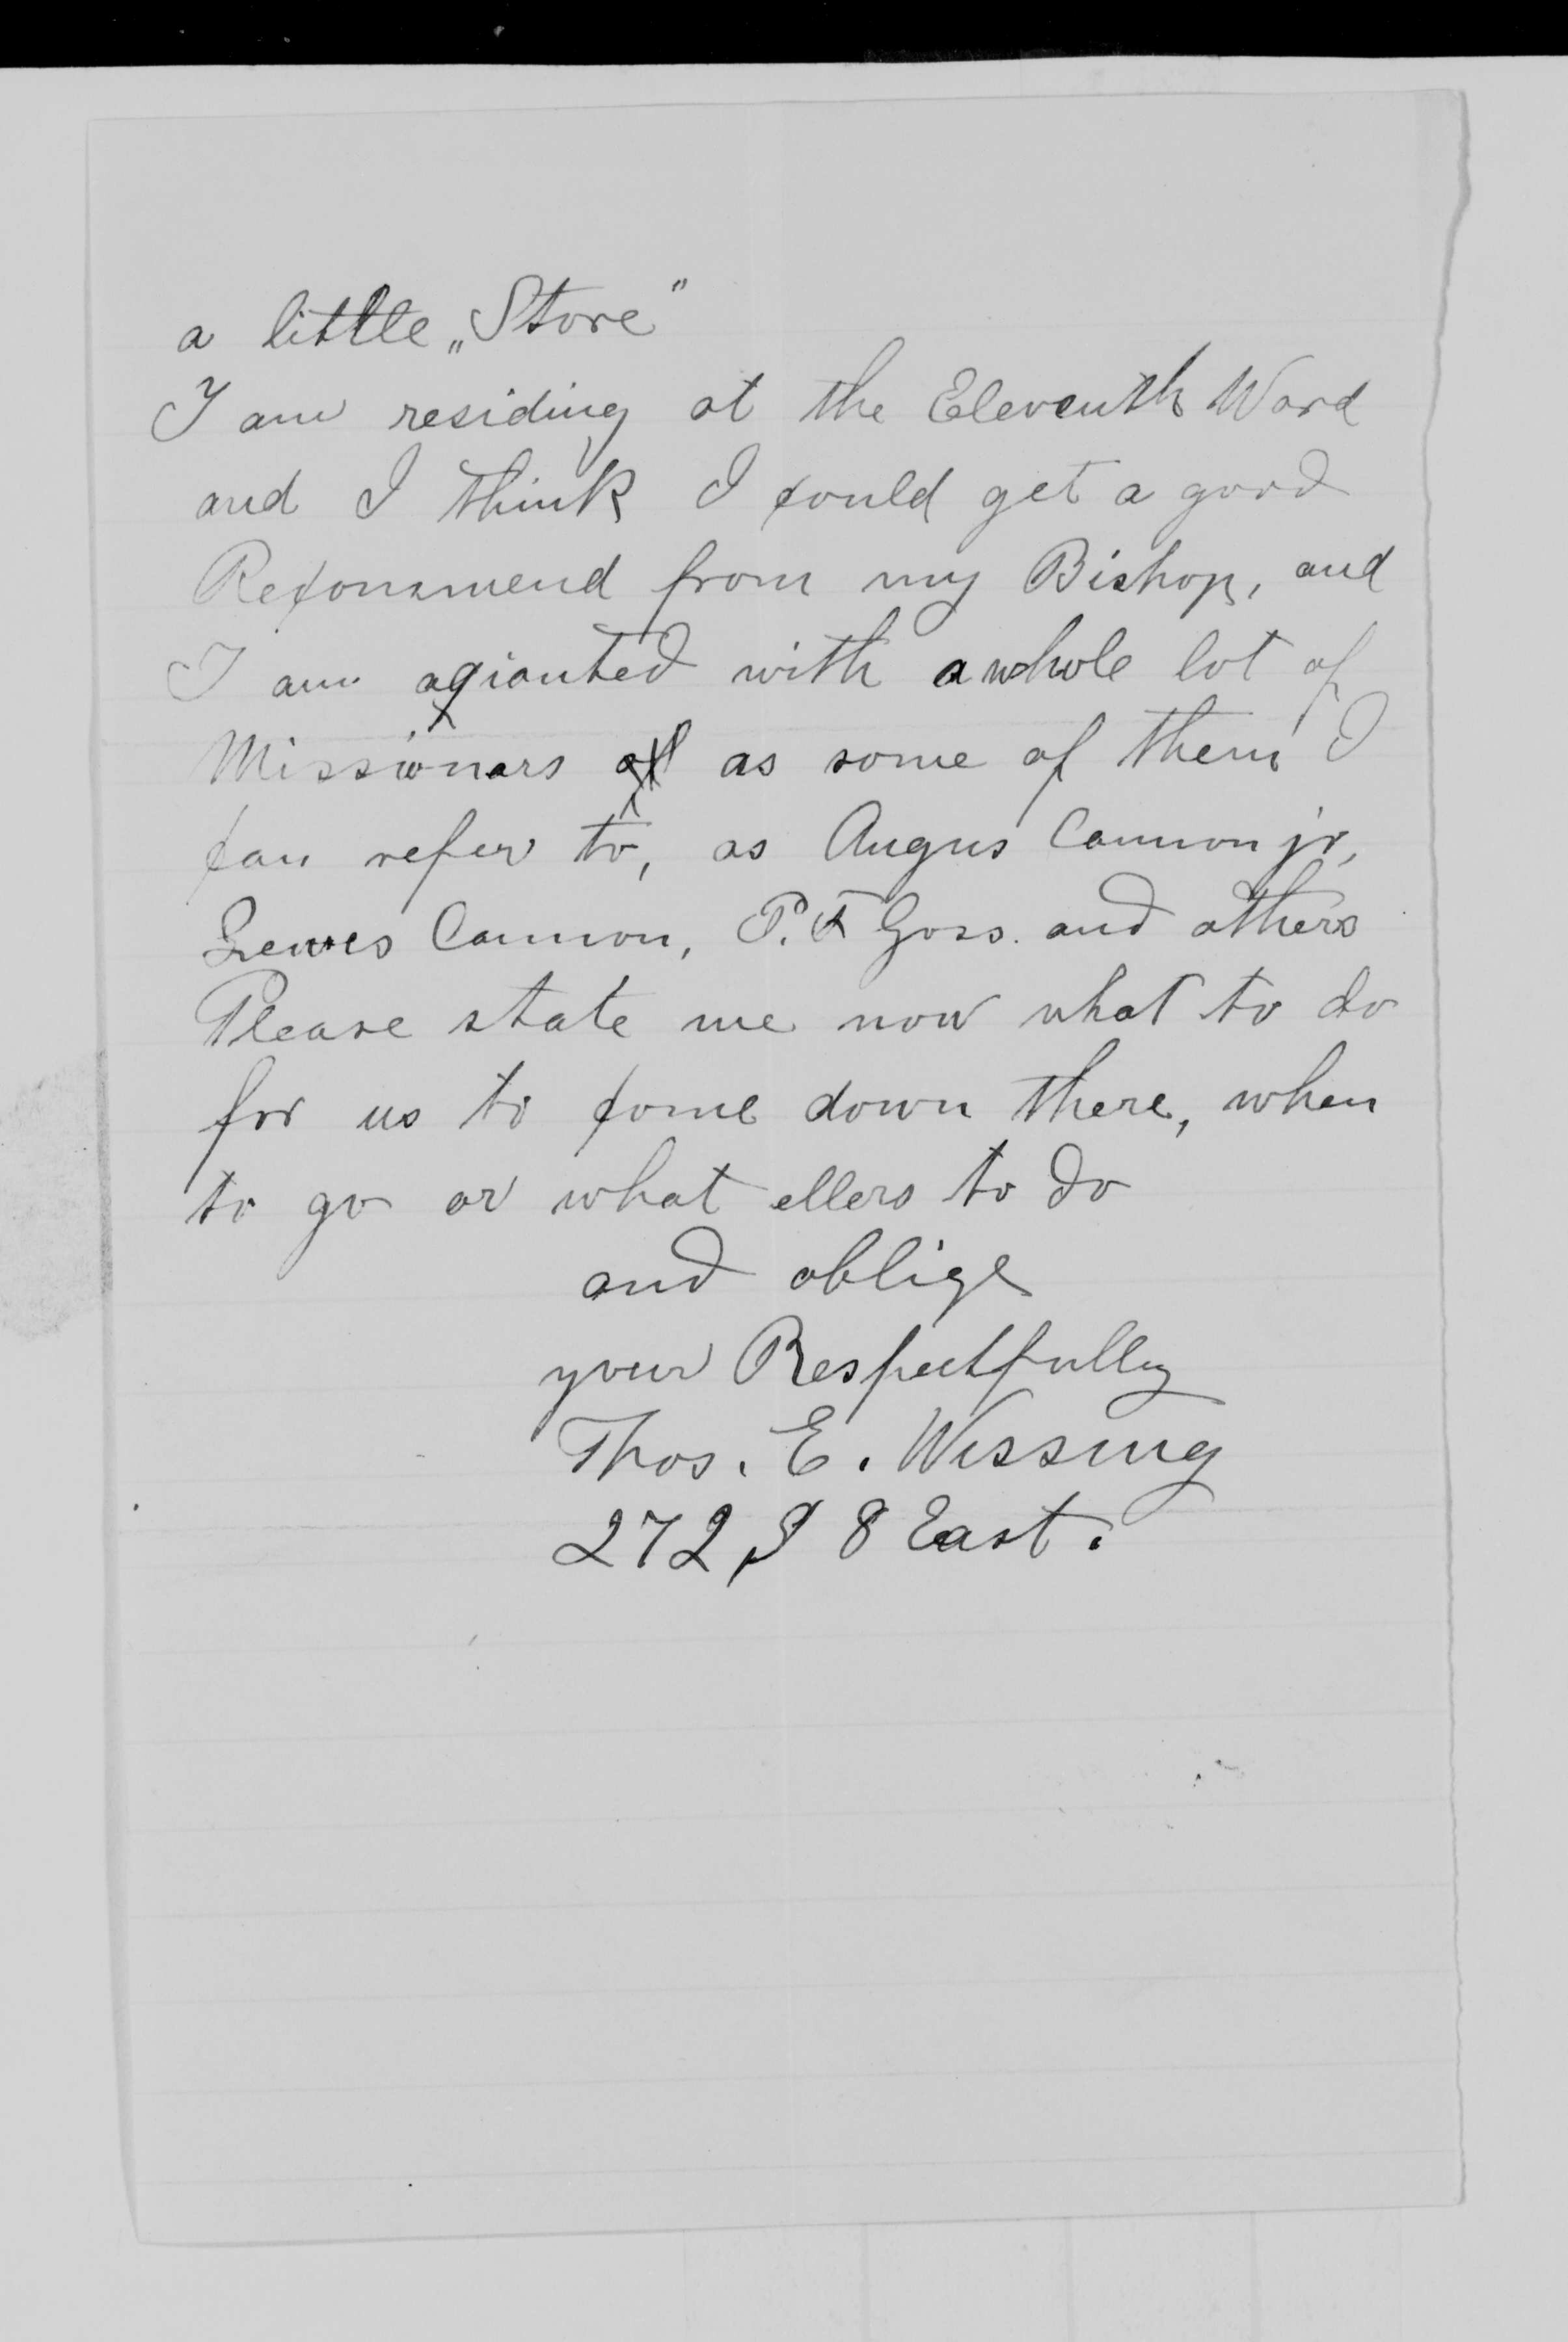 a little „Store"
I am residing at the Eleventh Ward
and I think I could get a good
Recommend from my Bishop, and
I am aqianted with a whole lot of
Missionars as some of them I
can refer to, as Angus Cannon jr,
Lewes Cannon, P. F Goss. and others
Please state me now what to do
for us to come down there, when
to go or what ellers to do
and oblige
your Respectfully
Thos. E. Wissing
272 S 8 East.